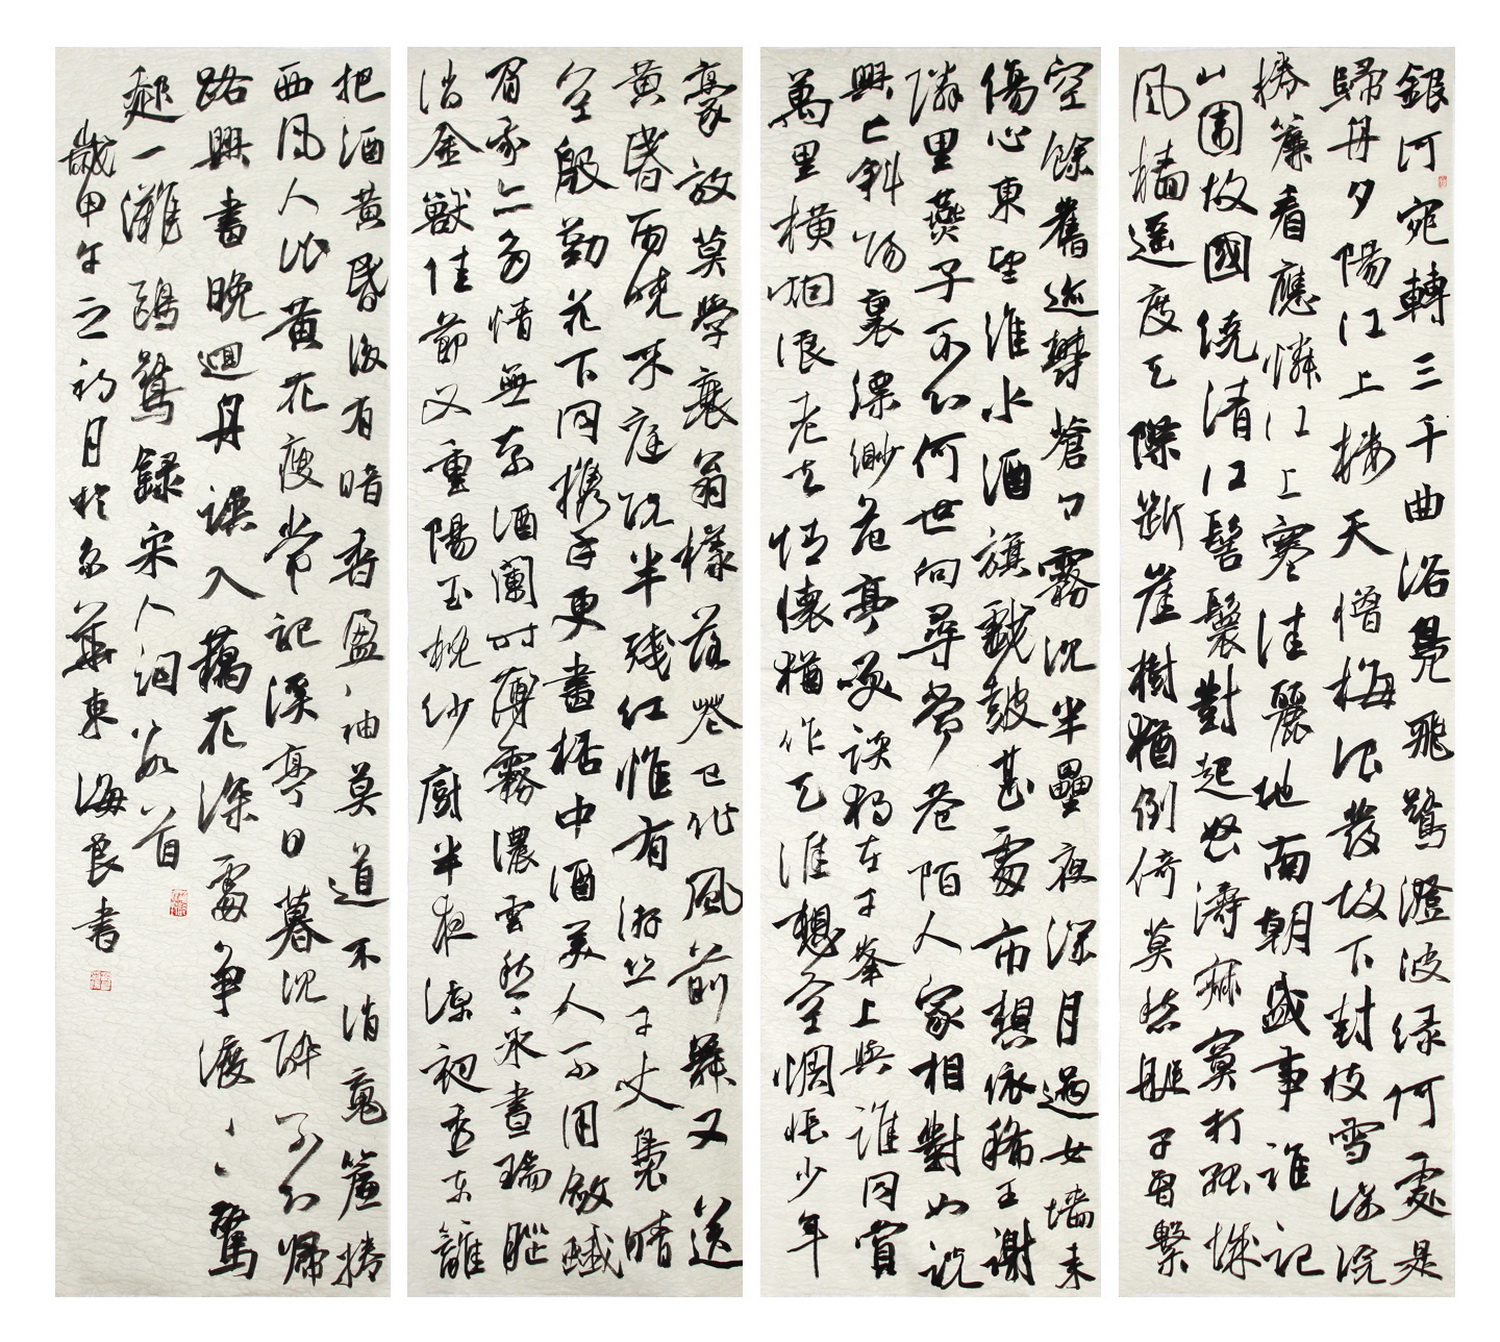 銀河宛轉三千曲浴鳧飛鷺澄波綠何處是
歸舟夕陽江上樓天憎梅浪發故下封枝雪深院
捲簾看應憐江上寒佳麗地南朝盛事誰記
山圍故國繞清江髻鬟對起怒濤寂寞打孤城
風檣遙度天際斷崖樹猶倒倚莫愁艇子曾繫
空餘舊迹鬱蒼々霧沉半壘夜深月過女墻來
傷心東望淮水酒旗戲鼓甚處市想依稀王謝
隣里燕子不知何世向尋常巷陌人家相對如說
興亡斜陽裏縹緲危亭笑談獨在千峯上與誰同賞
萬里橫烟浪老去情懷猶作天涯想空惆悵少年
豪放莫學衰翁樣落花已作風前舞又送
黃昏雨曉來庭院半殘紅惟有游絲千丈裊晴
空殷勤花下同携手更盡杯中酒美人不用斂蛾
眉我亦多情無奈酒闌時薄霧濃雲愁永晝瑞腦
消金獸佳節又重陽玉枕紗廚半夜涼初透東籬
把酒黃昏後有暗香盈袖莫道不消魂簾捲
西風人比黃花瘦常記溪亭日暮沉醉不知歸
路興盡晚迴舟誤入藕花深處爭渡爭渡驚
起一灘鷗鷺錄宋人詞首
歲甲午之初月於京華東海良書